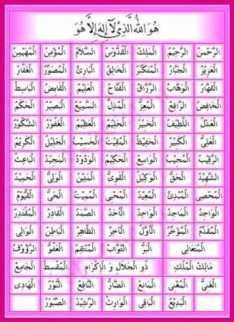 هُوَ اللهُ الَّذِىْ لَآ اِلٰهَ اِلَّا هُوَ
الرَّحْمٰنُ الرَّحِيْمُ الْمَلِكُ الْقُدُّوْسُ السَّلَامُ الْمُؤْمِنُ الْمُهَيْمِنُ
الْعَزِيْزُ الْجَبَّارُ الْمُتَكَبِّرُ الْخَالِقُ الْبَارِئُ الْمُصَوِّرُ الْغَفَّارُ
الْقَهَّارُ الْوَهَّابُ الرَّزَّاقُ الْفَتَّاحُ الْعَلِيْمُ الْقَابِضُ الْبَاسِطُ
الْخَافِضُ الرَّافِعُ الْمُعِزُّ الْمُذِلُّ السَّمِيْعُ الْبَصِيْرُ الْحَكَمُ
الْعَدْلُ اللَّطِيْفُ الْخَبِيْرُ الْحَلِيْمُ الْعَظِيْمُ الْغَفُوْرُ الشَّكُوْرُ
الْعَلِىُّ الْكَبِيْرُ الْحَفِيْظُ الْمُقِيْتُ الْحَسِيْبُ الْجَلِيْلُ الْكَرِيْمُ
الرَّقِيْبُ الْمُجِيْبُ الْوَاسِعُ الْحَكِيْمُ الْوَدُوْدُ الْمَجِيْدُ الْبَاعِثُ
الشَّهِيْدُ الْحَقُّ الْوَكِيْلُ الْقَوِىُّ الْمَتِيْنُ الْوَلِىُّ الْحَمِيْدُ
الْمُحْصِى الْمُبْدِئُ الْمُعِيْدُ الْمُحْيِى الْمُمِيْتُ الْحَىُّ الْقَيُّوْمُ
الْوَاجِدُ الْمَاجِدُ الْوَاحِدُ الْاَحَدُ الصَّمَدُ الْقَادِرُ الْمُقْتَدِرُ
الْمُقَدِّمُ الْمُؤَخِّرُ الْاَوَّلُ الْآخِرُ الظَّاهِرُ الْبَاطِنُ الْوَالِى
الْمُتَعَالِى الْبَرُّ التَّوَّابُ الْمُنْتَقِمُ الْعَفُوُّ الرَّؤُوْفُ
مَالِكُ الْمُلْكِ ذُو الْجَلَالِ وَ الْاِكْرَامِ الْمُقْسِطُ الْجَامِعُ
الْغَنِىُّ الْمُغْنِى الْمَانِعُ الضَّارُّ النَّافِعُ النُّوْرُ الْهَادِى
الْبَدِيْعُ الْبَاقِى الْوَارِثُ الرَّشِيْدُ الصَّبُوْرُ